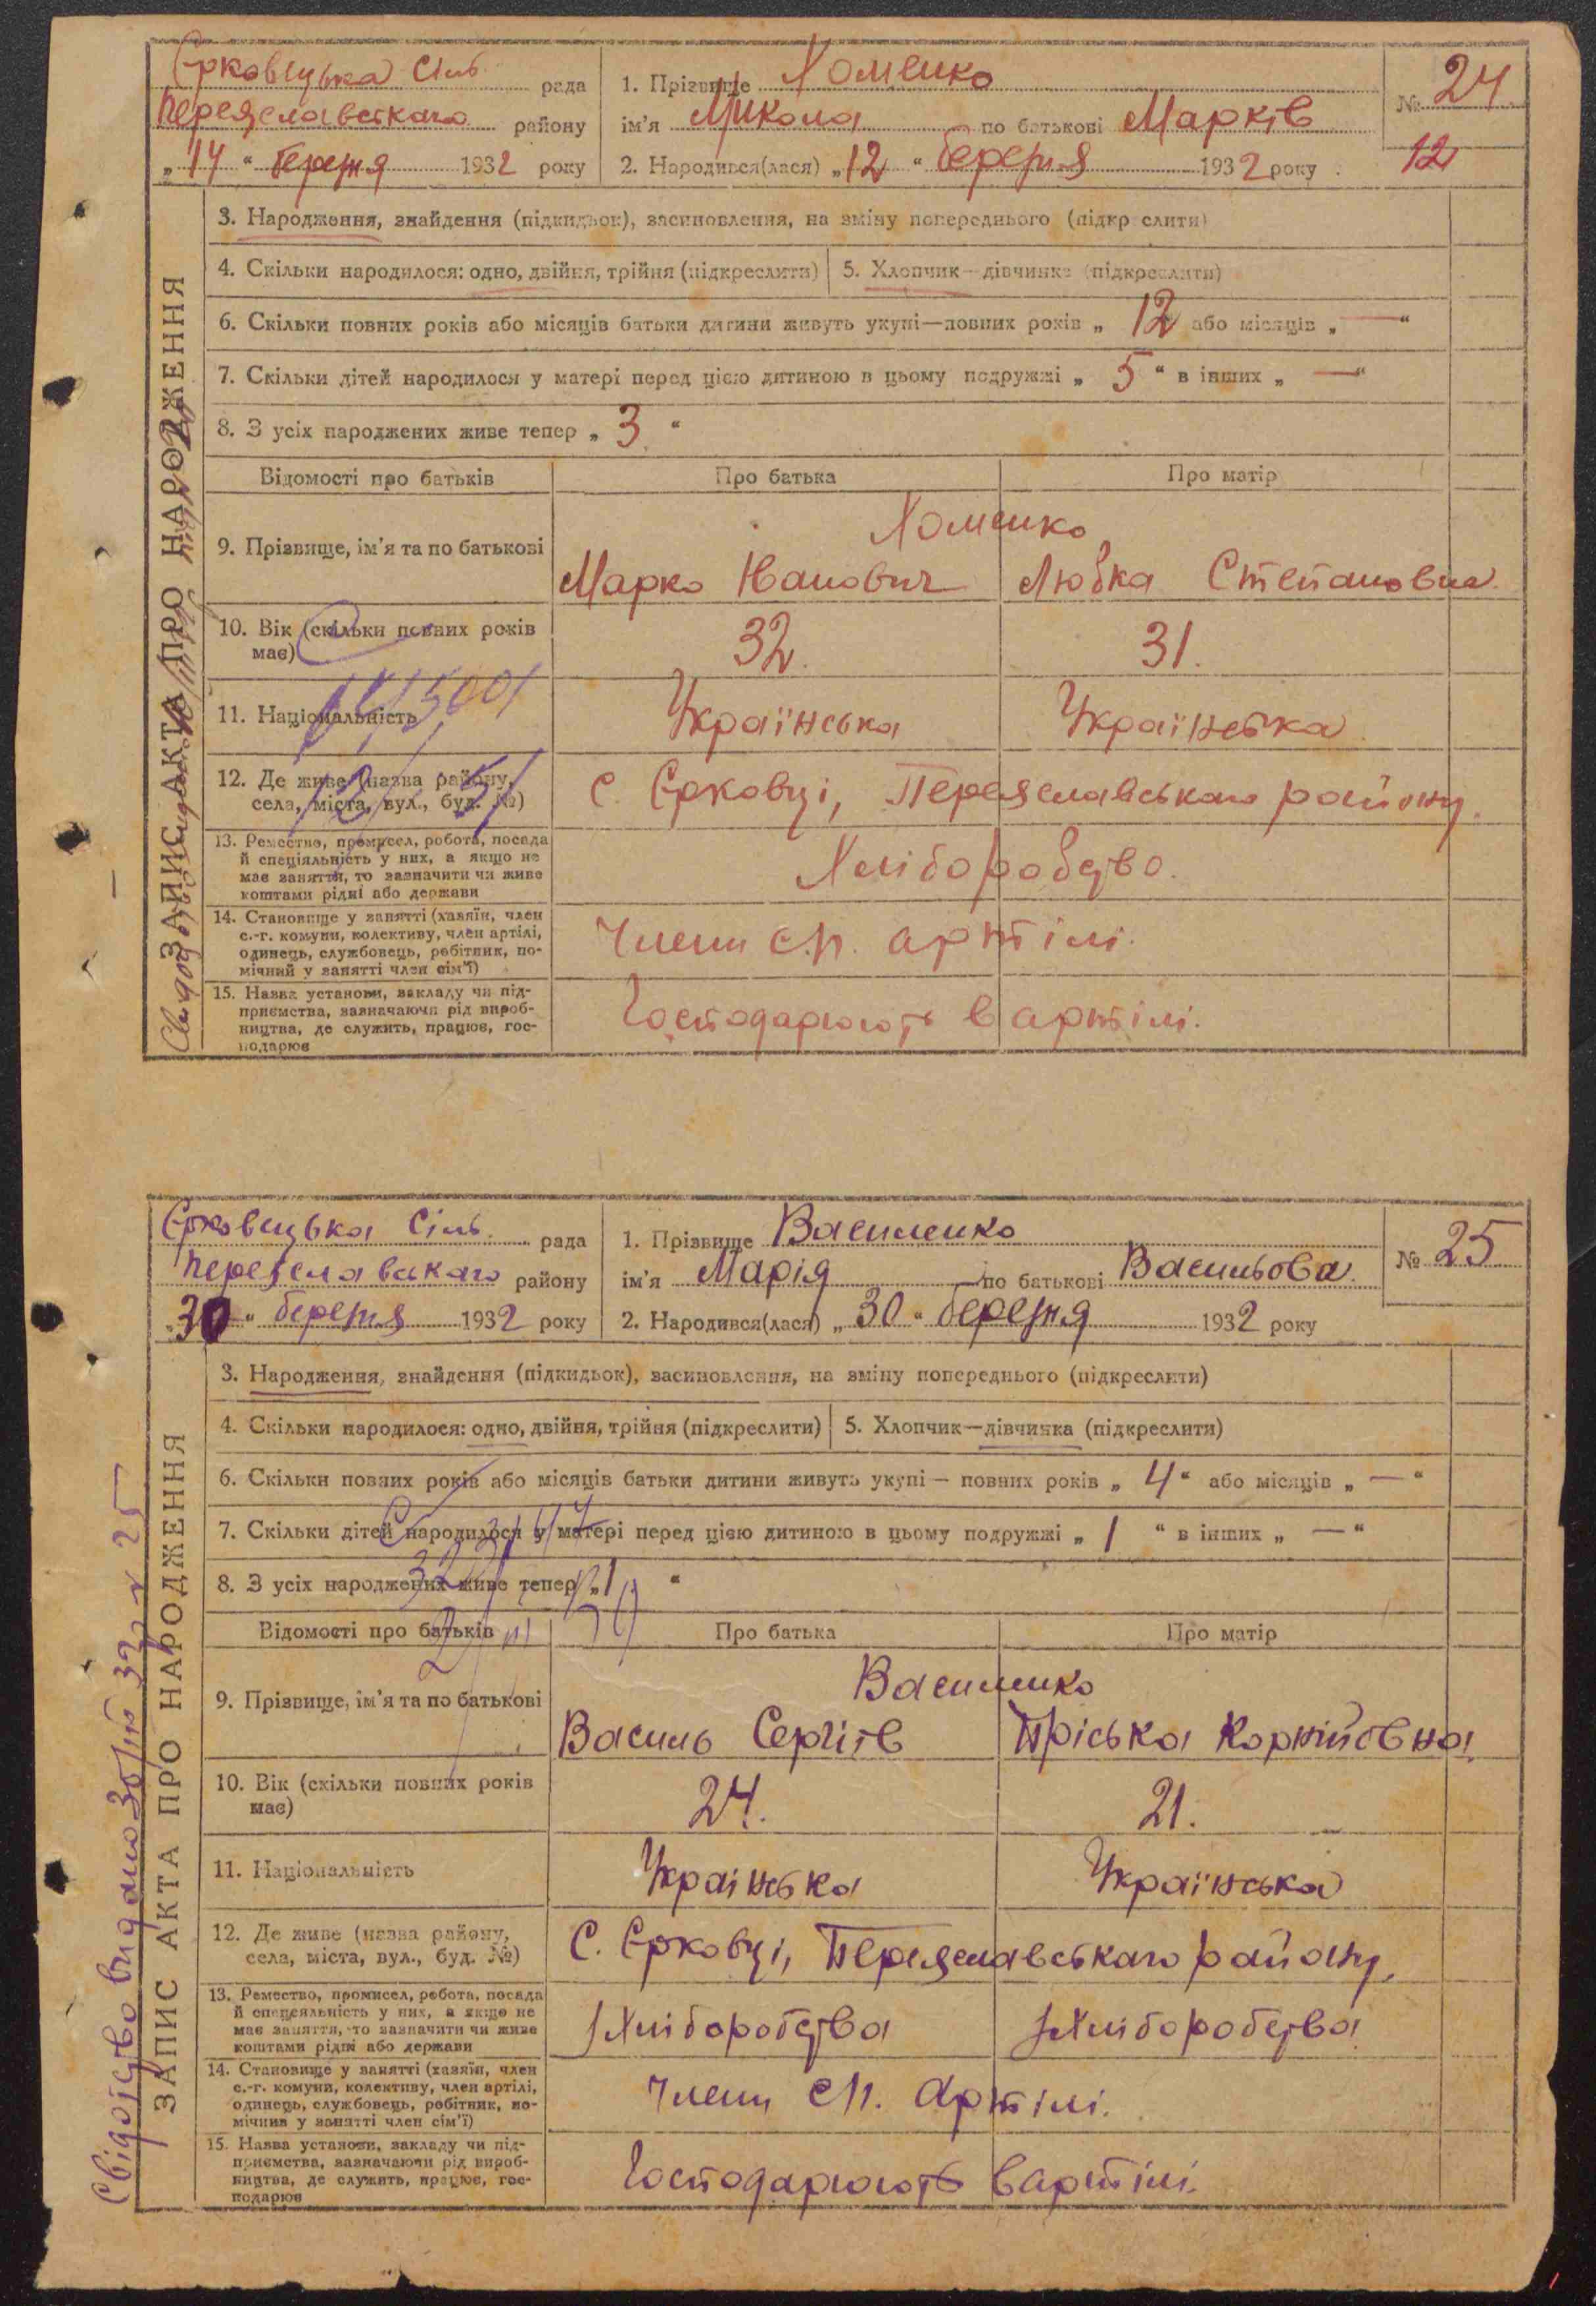 Єрковецька Сіль. рада
Переяславського району
„14“ березня 1932 року
1. Прізвище Хоменко
ім'я Микола по батькові Марків
2. Народився(лася) „12“ березня 1932 року
№ 24
12
ЗАПИС АКТА ПРО НАРОДЖЕННЯ
3. Народження, знайдення (підкидьок), засиновлення, на зміну попереднього (підкреслити)
4. Скільки народилося: одно, двійня, трійня (підкреслити) 5. Хлопчик—дівчинка (підкреслити)
6. Скільки повних років або місяців батьки дитини живуть укупі—повних років „12 або місяців „—“
7. Скільки дітей народилося у матері перед цією дитиною в цьому подружжі „5“ в інших „—“
8. З усіх народжених живе тепер „3“
Відомості про батьків Про батька Про матір
9. Прізвище, ім'я та по батькові
Хоменко
Марко Іванович Любка Степановна
10. Вік (скільки повних років
має)
32. 31.
11. Національність Українська Українська
12. Де живе (назва району,
села, міста, вул., буд. №)
с. Єрковці, Переяславського району.
13. Ремество, промисел, робота, посада
й спеціяльність у них, а якщо не
має заняття, то зазначити чи живе
коштами рідні або держави
Хліборобство.
14. Становище у занятті (хазяїн, член
с.-г. комуни, колективу, член артілі,
одинець, службовець, робітник, по-
мічний у занятті член сім'ї)
Члени с.п. артілі.
15. Назва установи, закладу чи під-
приємства, зазначаючи рід вироб-
ництва, де служить, працює, гос-
подарює
Господарюють в артілі.
Єрковецька Сіль. рада
Переяславського району
„30“ березня 1932 року
1. Прізвище Василенко
ім'я Марія по батькові Васильова
2. Народився(лася) „30“ березня 1932 року
№ 25
Свідоцтво видано 30/III 32 р № 25
ЗАПИС АКТА ПРО НАРОДЖЕННЯ
3. Народження, знайдення (підкидьок), засиновлення, на зміну попереднього (підкреслити)
4. Скільки народилося: одно, двійня, трійня (підкреслити) 5. Хлопчик—дівчинка (підкреслити)
6. Скільки повних років або місяців батьки дитини живуть укупі — повних років „4“ або місяців „—“
7. Скільки дітей народилося у матері перед цією дитиною в цьому подружжі „1“ в інших „—“
8. З усіх народжених живе тепер „1“
Відомості про батьків Про батька Про матір
9. Прізвище, ім'я та по батькові
Василенко
Василь Сергіїв Пріська Корнійовна
10. Вік (скільки повних років
має)
24. 21.
11. Національність Українська Українська
12. Де живе (назва району,
села, міста, вул., буд. №)
С. Єрковці, Переяславського району.
13. Ремество, промисел, робота, посада
й спецеяльність у них, а якщо не
має заняття, то зазначити чи живе
коштами рідні або держави
Хліборобства Хліборобства
14. Становище у занятті (хазяїн, член
с.-г. комуни, колективу, член артілі,
одинець, службовець, робітник, по-
мічний у занятті член сім'ї)
Члени с.п. артілі.
15. Назва установи, закладу чи під-
приємства, зазначаючи рід вироб-
ництва, де служить, працює, гос-
подарює
Господарюють в артілі.